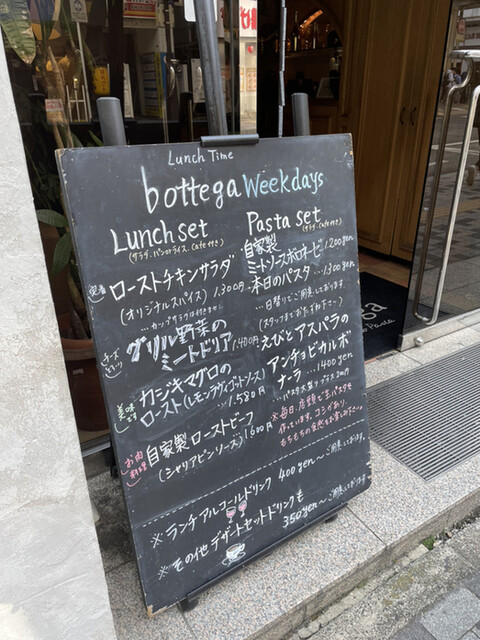 Lunch Time
bottega Weekdays
Lunch set
(サラダ・パンorライス・Cafe付き)
ローストチキンサラダ
(オリジナルスパイス) 1,300円
…カップサラダは付きません
チーズ
グリル野菜の
ミートドリア 1,400円
カジキマグロの
ロースト(レモンラヴィゴットソース)
…1,580円
お肉
料理
自家製ローストビーフ
(シャリアピンソース) 1600円
Pasta set
(サラダ・Cafe付き)
自家製
ミートソースボロネーゼ 1,200yen
本日のパスタ …1,300yen
…日替りでご用意しております
(スタッフまでおたずね下さい)
えびとアスパラの
アンチョビカルボ
ナーラ …1400yen
…パスタ大盛り プラス200円
※毎日、店頭で生パスタを
作っています。コシがあり、
もちもちの食感をお楽しみ下さい。
※ランチアルコールドリンク 400yen～ご用意しております。
※その他デザートセットドリンクも
350yen～ご用意しております